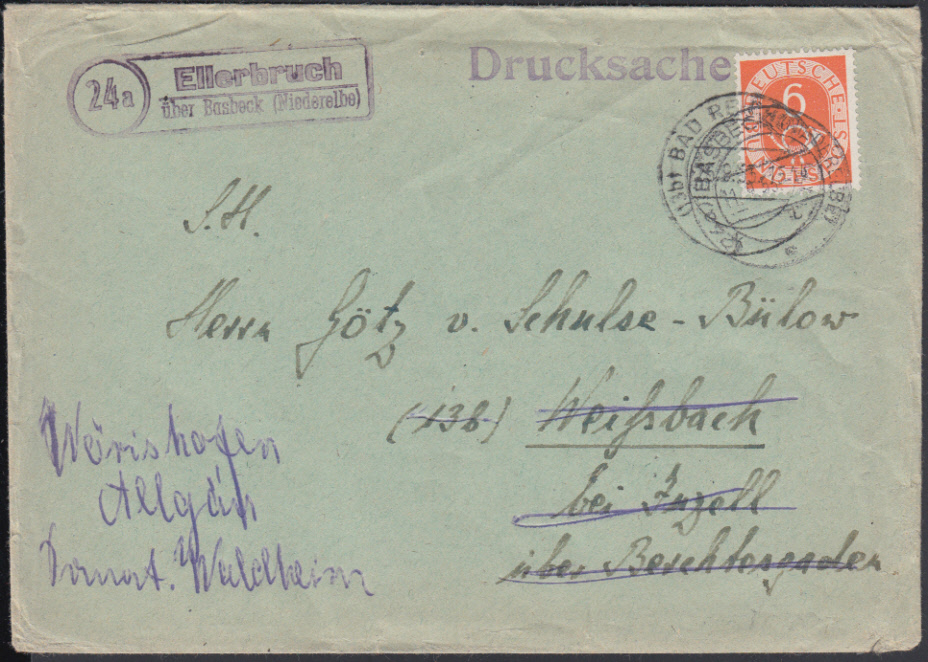 24a
Ellerbruch
über Basbeck (Niederelbe)
Drucksache
DEUTSCHE POST
6
(13b) BAD REICHENHALL
(24a) BASBECK
S.H.
Herrn Götz v. Schulse-Bülow
(13b) Weißbach
bei Inzell
über Berchtesgaden
Wörishofen
Allgäu
Sanat. Waldheim